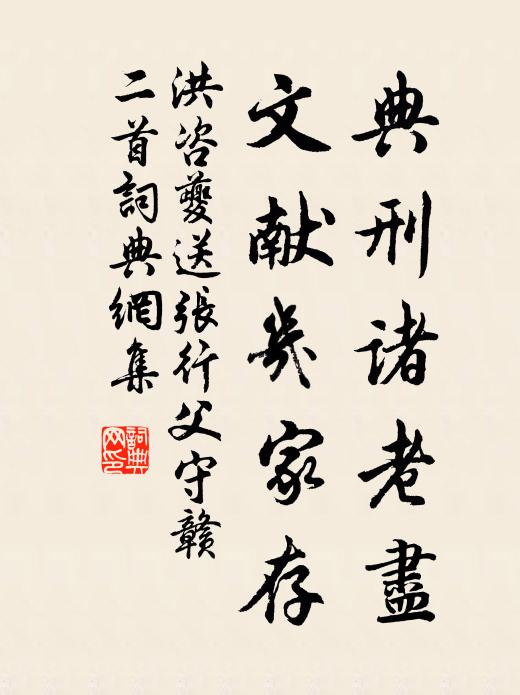 典刑诸老盡
文献幾家存
洪咨夔送張行父守贛
二首詞典網集
詞典
网印